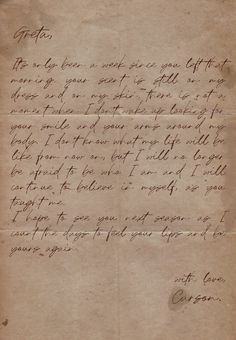 Greta,
It's only been a week since you left that
morning, your scent is still on my
dress and on my skin, there is not a
moment when I don't wake up looking for
your smile and your arms around my
body. I don't know what my life will be
like from now on, but I will no longer
be afraid to be who I am and I will
continue to believe in myself, as you
taught me.
I hope to see you next season as I
count the days to feel your lips and be
yours again.
with love,
Carson.